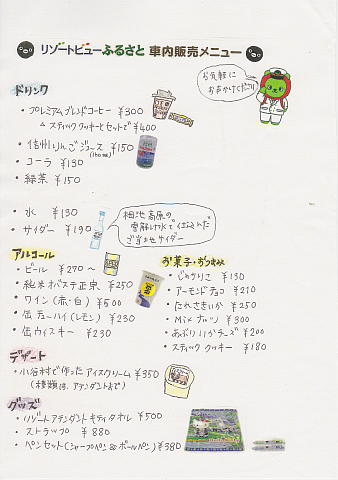 リゾートビューふるさと 車内販売メニュー
お気軽に
お声がけください
ドリンク
・プレミアムブレンドコーヒー ¥300
△スティッククッキーとセットで ¥400
・信州りんごジュース ¥150
・コーラ ¥130
・緑茶 ¥150
・水 ¥130
・サイダー ¥190
栂池高原の
雪解け水で仕込んだ
ご当地サイダー
アルコール
・ビール ¥270～
・純米オバステ正宗 ¥250
・ワイン(赤・白) ¥500
・缶チューハイ(レモン) ¥230
・缶ウィスキー ¥230
お菓子・おつまみ
・じゃがりこ ¥130
・アーモンドチョコ ¥210
・たれさきいか ¥250
・Mixナッツ ¥300
・あぶりいかチーズ ¥200
・スティッククッキー ¥180
デザート
・小谷村で作ったアイスクリーム ¥350
(種類は、アテンダントまで)
グッズ
・リゾートアテンダントキティタオル ¥500
・ストラップ ¥880
・ペンセット(シャープペン&ボールペン) ¥380